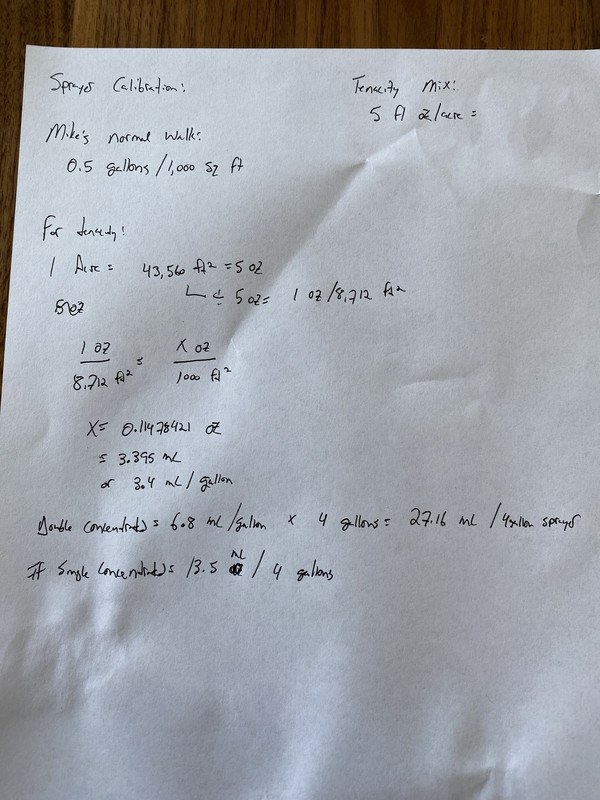 Sprayer Calibration:
Tenacity Mix:
5 fl oz/acre =
Mike's normal walk:
0.5 gallons / 1,000 sq ft
For tenacity:
1 Acre = 43,560 ft² = 5 oz
↳ ÷ 5 oz = 1 oz / 8,712 ft²
1 oz / 8,712 ft² = X oz / 1000 ft²
X = 0.11478421 oz
= 3.395 mL
or 3.4 mL / gallon
Double concentrated = 6.8 mL/gallon × 4 gallons = 27.16 mL / 4 gallon sprayer
If Single concentrated = 13.5 mL / 4 gallons